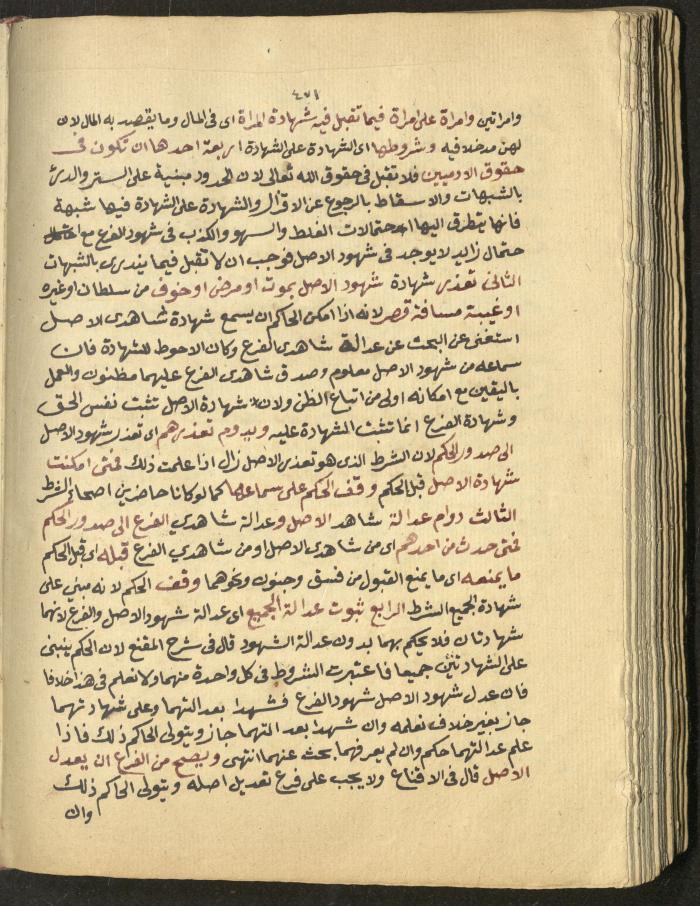 ٤٧١
وامراتين وامراة على امراة فيما تقبل فيه شهادة المراة اى فى المال وما يقصد به المال لان
لهن مدخلا فيه وشروطها اى الشهادة على الشهادة اربعة احدها ان تكون فى
حقوق الادميين فلا تقبل فى حقوق الله تعالى لان الحدود مبنية على الستر والدرئ
بالشبهات والاسقاط بالرجوع عن الاقرار والشهادة على الشهادة فيها شبهة
فانها يتطرق اليها احتمالات الغلط والسهو والكذب فى شهود الفرع مع احتمال
حتمال زايد لا يوجد فى شهود الاصل فوجب ان لا تقبل فيما يندرى بالشبهات
الثانى تعذر شهادة شهود الاصل بموت او مرض او خوف من سلطان او غيره
او غيبة مسافة قصر لانه اذا امكن الحاكم ان يسمع شهادة شاهدى الاصل
استغنى عن البحث عن عدالة شاهدى الفرع وكان الاحوط للشهادة فان
سماعه من شهود الاصل معلوم وصدق شاهدى الفرع عليهما مظنون والعمل
باليقين مع امكانه اولى من اتباع الظن ولان شهادة الاصل تثبت نفس الحق
وشهادة الفرع انما تثبت الشهادة عليه ويدوم تعذرهم اى تعذر شهود الاصل
الى صدور الحكم لان الشرط الذى هو تعذر الاصل زال اذا علمت ذلك فمتى امكنت
شهادة الاصل قبل الحكم وقف الحكم على سماعها كما لو كانا حاضرين اصحاء الشرط
الثالث دوام عدالة شاهد الاصل وعدالة شاهدي الفرع الى صدور الحكم
فمتى حدث من احدهم اى من شاهدى الاصل او من شاهدي الفرع قبله اى قبل الحكم
ما يمنعه اى ما يمنع القبول من فسق وجنون ونحوهما وقف الحكم لانه مبني على
شهادة الجميع الشرط الرابع ثبوت عدالة الجميع اى عدالة شهود الاصل والفرع لانهما
شهادتان فلا يحكم بهما بدون عدالة الشهود قال فى شرح المقنع لان الحكم ينبنى
على الشهادتين جميعا فاعتبرت الشروط فى كل واحدة منهما ولا نعلم فى هذا خلافا
فان عدل شهود الاصل شهود الفرع فشهدا بعدالتهما وعلى شهادتهما
جاز بغير خلاف نعلمه وان شهدا بعدالتهما جاز ويتولى الحاكم ذلك فاذا
علم عدالتهما حكم وان لم يعرفهما بحث عنهما انتهى ويصح من الفرع ان يعدل
الاصل قال فى الاقناع ولا يجب على فرع تعديل اصله ويتولى الحاكم ذلك
وان